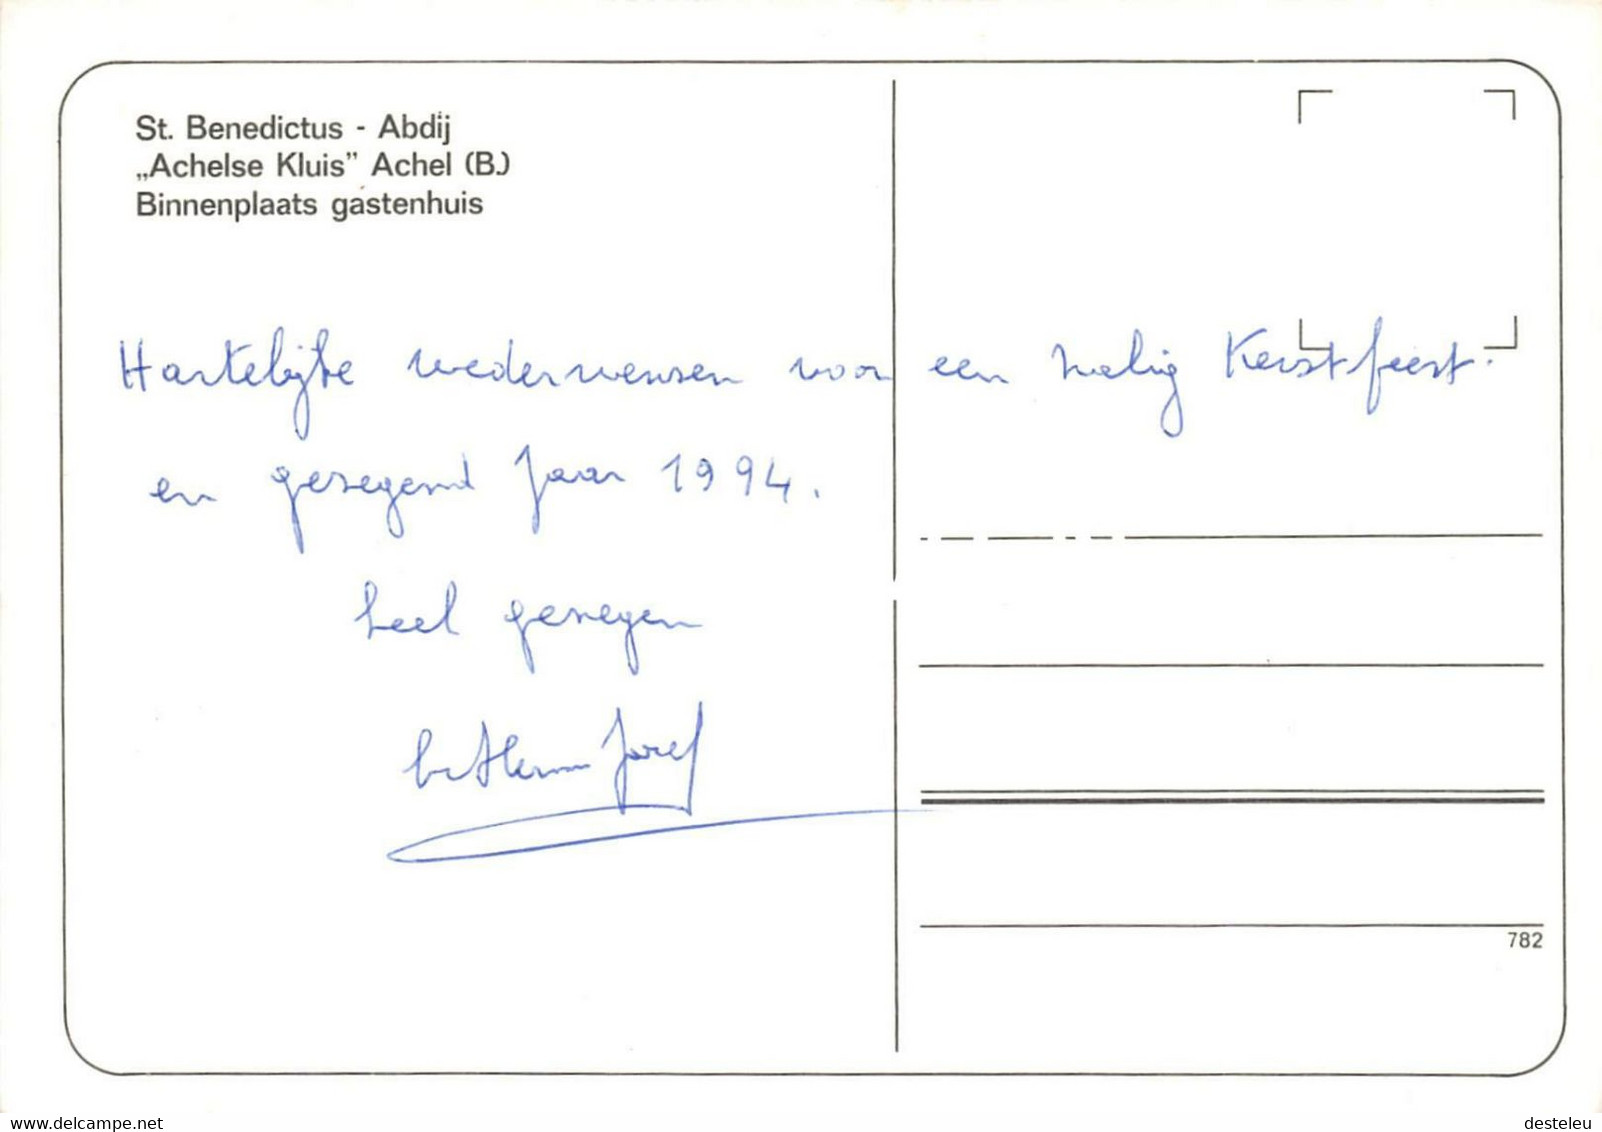 St. Benedictus - Abdij
„Achelse Kluis” Achel (B.)
Binnenplaats gastenhuis
Hartelijke wederwensen voor een zalig Kerstfeest.
en gezegend Jaar 1994.
heel genegen
br Herman Jozef
782
www.delcampe.net
desteleu